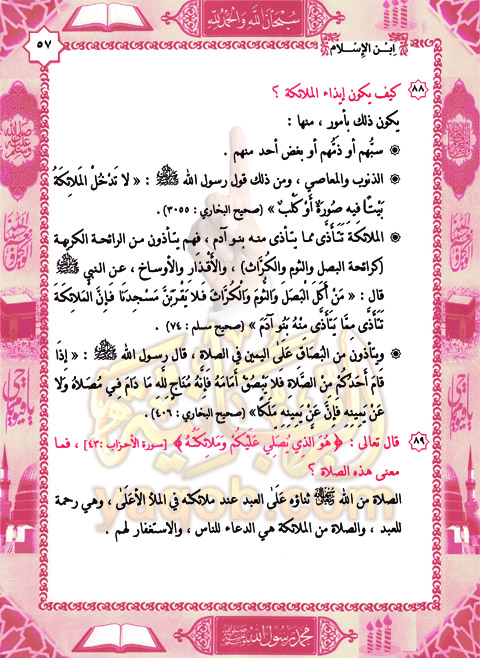 سبحان الله والحمد لله
ابن الإسلام
٥٧
٨٨ كيف يكون إيذاء الملائكة ؟
يكون ذلك بأمور ، منها :
سبُّهم أو ذمُّهم أو بغض أحد منهم .
الذنوب والمعاصي ، ومن ذلك قول رسول الله ﷺ : « لا تَدْخُلُ الْمَلائِكَةُ
بَيْتًا فِيهِ صُورَةٌ أَوْ كَلْبٌ » (صحيح البخاري : ٣٠٥٥) .
الملائكة تَتَأَذَّى مما يتأذى منه بنو آدم ، فهم يتأذون من الرائحة الكريهة
(كرائحة البصل والثوم والكُرَّاث) ، والأقْذَار والأوساخ ، عن النبي ﷺ
قال : « مَنْ أَكَلَ الْبَصَلَ وَالثُّومَ وَالْكُرَّاثَ فَلا يَقْرَبَنَّ مَسْجِدَنَا فَإِنَّ الْمَلائِكَةَ
تَتَأَذَّى مِمَّا يَتَأَذَّى مِنْهُ بَنُو آدَمَ » (صحيح مسلم : ٧٤) .
ويتأذون من البُصَاق عَلَى اليمين في الصلاة ، قال رسول الله ﷺ : « إِذَا
قَامَ أَحَدُكُمْ مِنْ الصَّلاة فَلا يَبْصُقْ أَمَامَهُ فَإِنَّهُ مُنَاجٍ لِلَّهِ مَا دَامَ فِي مُصَلاهُ وَلا
عَنْ يَمِينِهِ فَإِنَّ عَنْ يَمِينِهِ مَلَكًا» (صحيح البخاري : ٤٠٦) .
٨٩ قال تعالى : ﴿ هُوَ الَّذِي يُصَلِّي عَلَيْكُمْ وَمَلَائِكَتُهُ ﴾ [سورة الأحزاب :٤٣] ، فما
معنى هذه الصلاة ؟
الصلاة من الله ﷻ ثناؤه عَلَى العبد عند ملائكته في الملأ الأَعْلَى ، وهي رحمة
للعبد ، والصلاة من الملائكة هي الدعاء للناس ، والاستغفار لهم .
yaqob.com
محمد رسول الله ﷺ